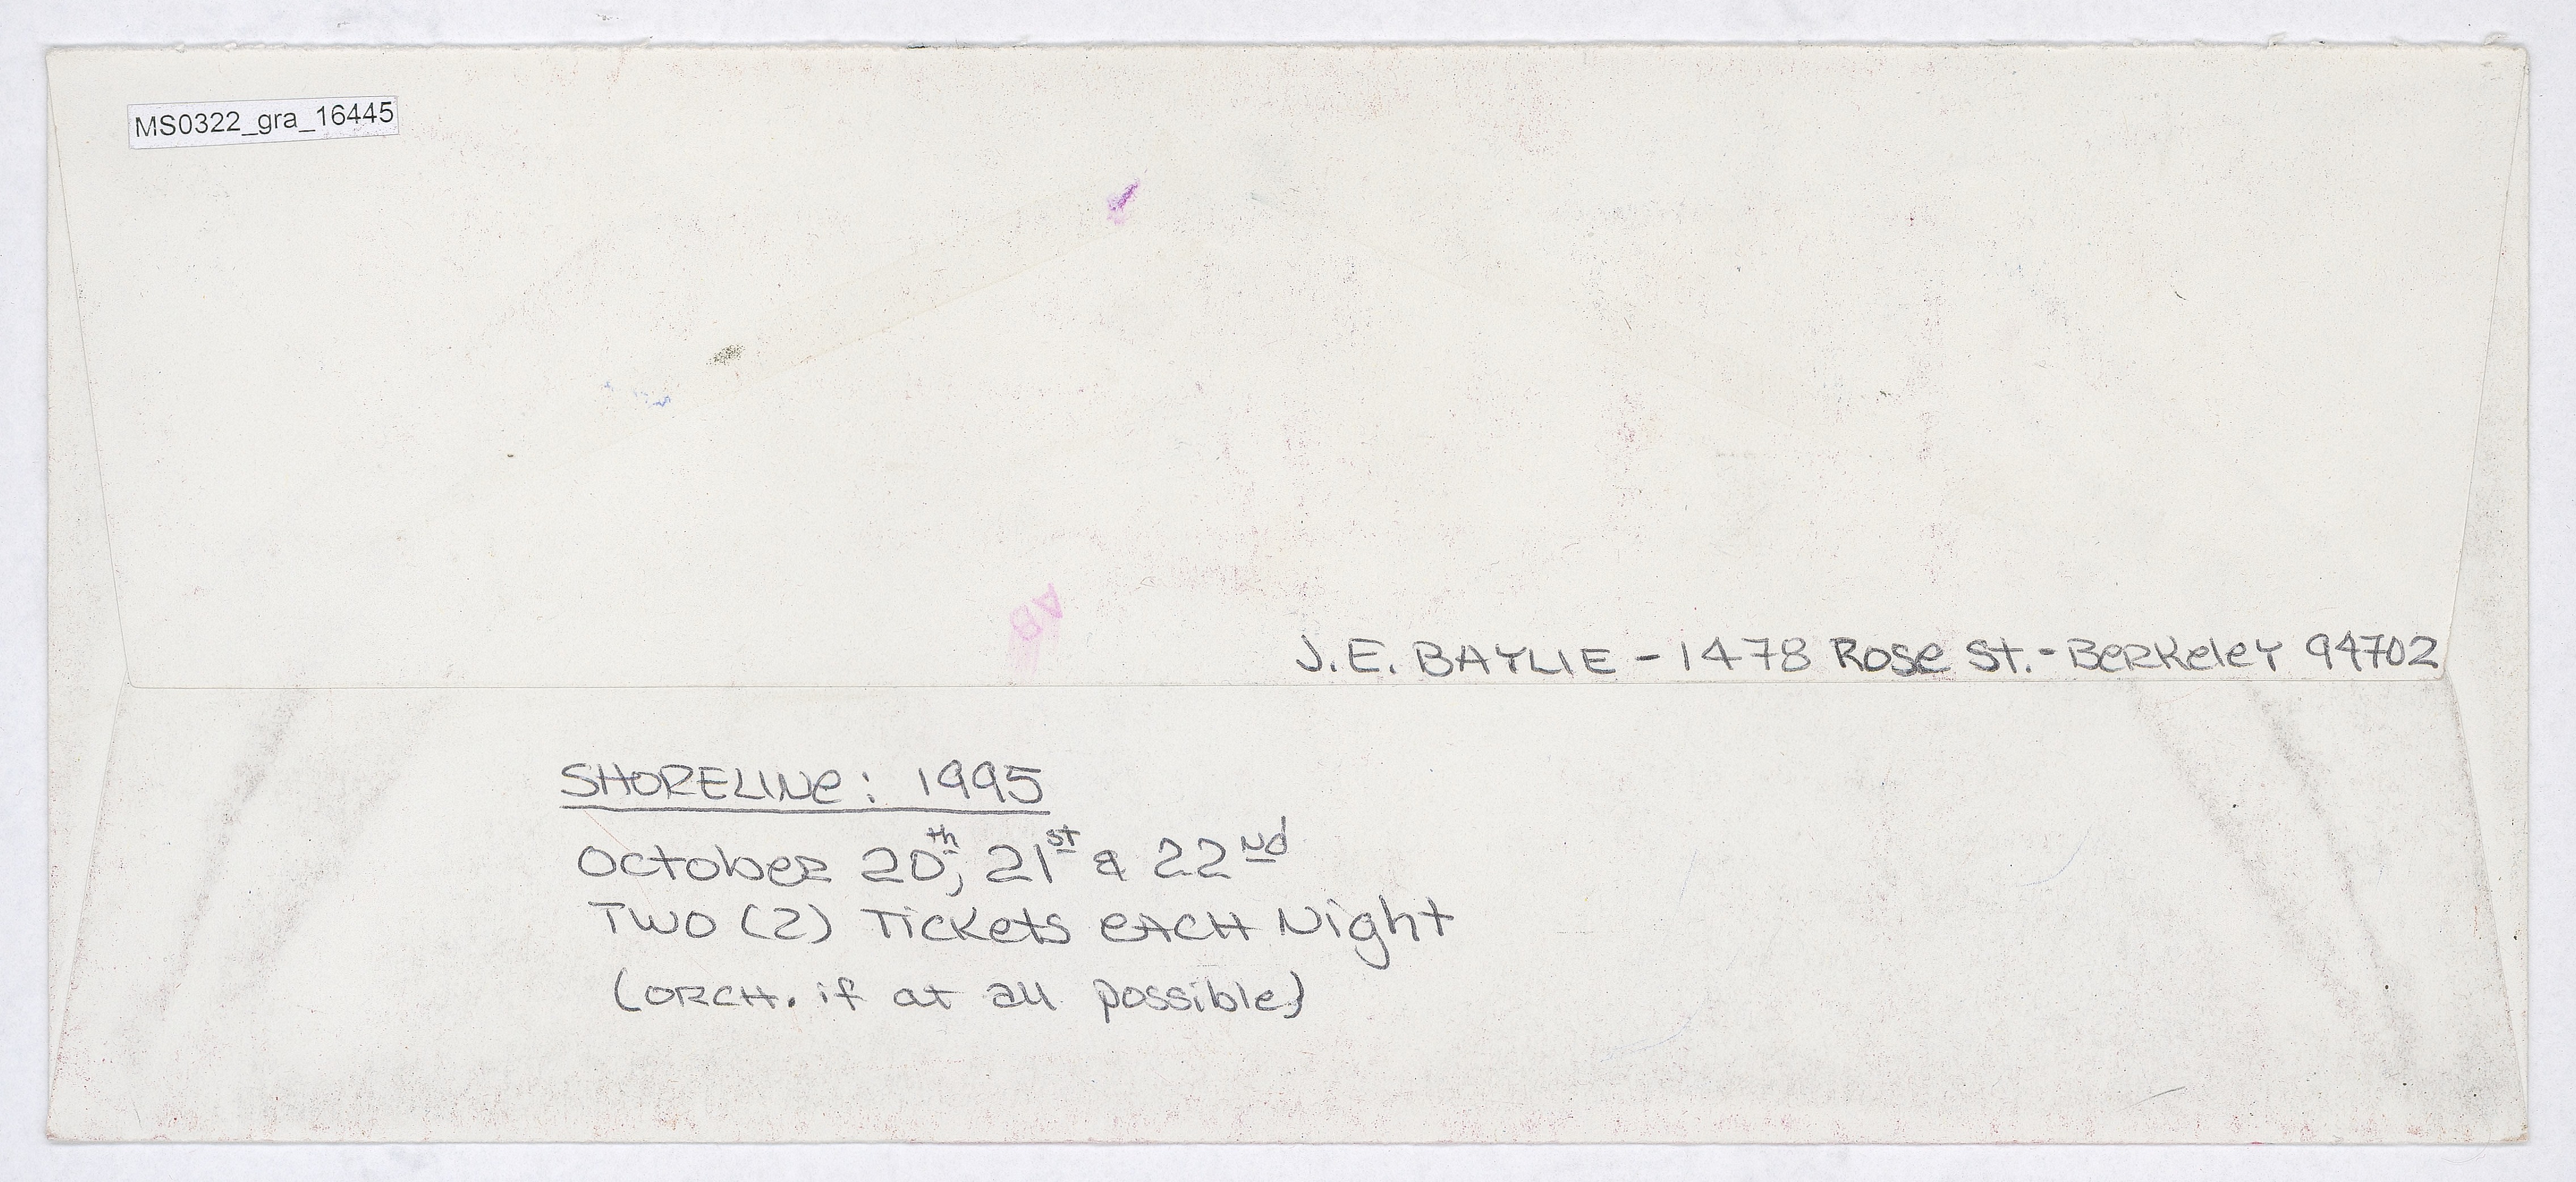 MS0322_gra_16445
J.E. BAYLIE - 1478 Rose St. - Berkeley 94702
SHORELINE: 1995
October 20th, 21st & 22nd
Two (2) Tickets each Night
(ORCH. if at all possible)